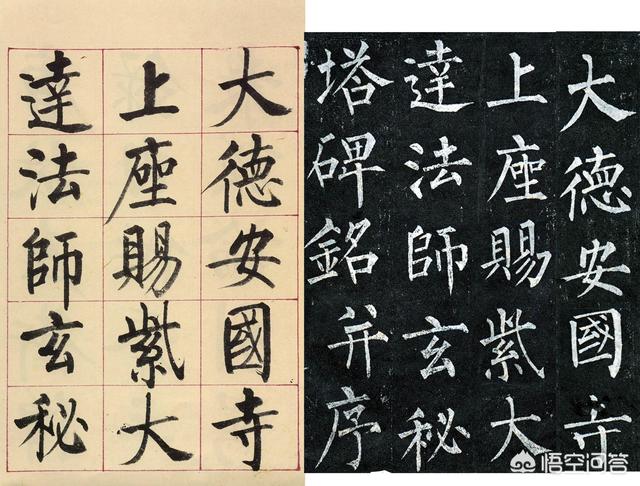 大德安國寺
上座賜紫大
達法師玄秘
大德安國寺
上座賜紫大
達法師玄秘
塔碑銘并序
悟空问答